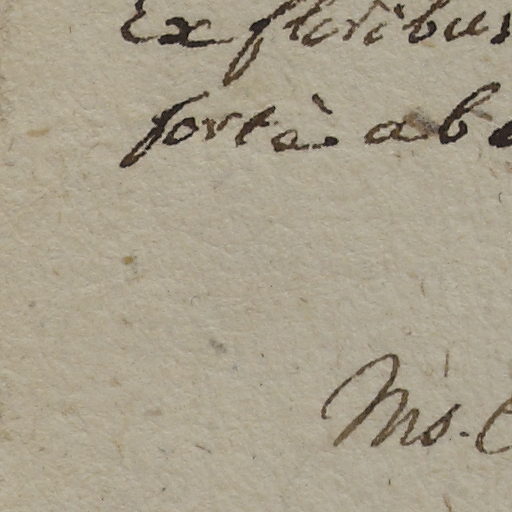 Ex floribus
fortè ab
Ms.